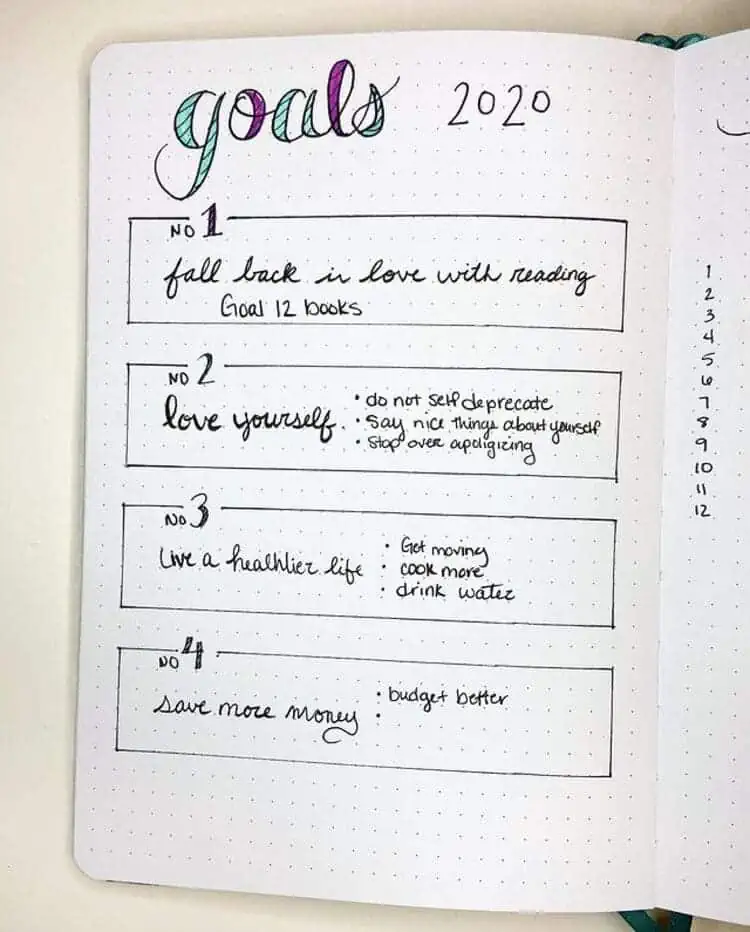 goals 2020
NO 1
fall back in love with reading
Goal 12 books
NO 2
love yourself.
• do not self deprecate
• Say nice things about yourself
• Stop over apoligizing
NO 3
Live a healthier life
• Get moving
• cook more
• drink water
NO 4
save more money
• budget better
•
1
2
3
4
5
6
7
8
9
10
11
12